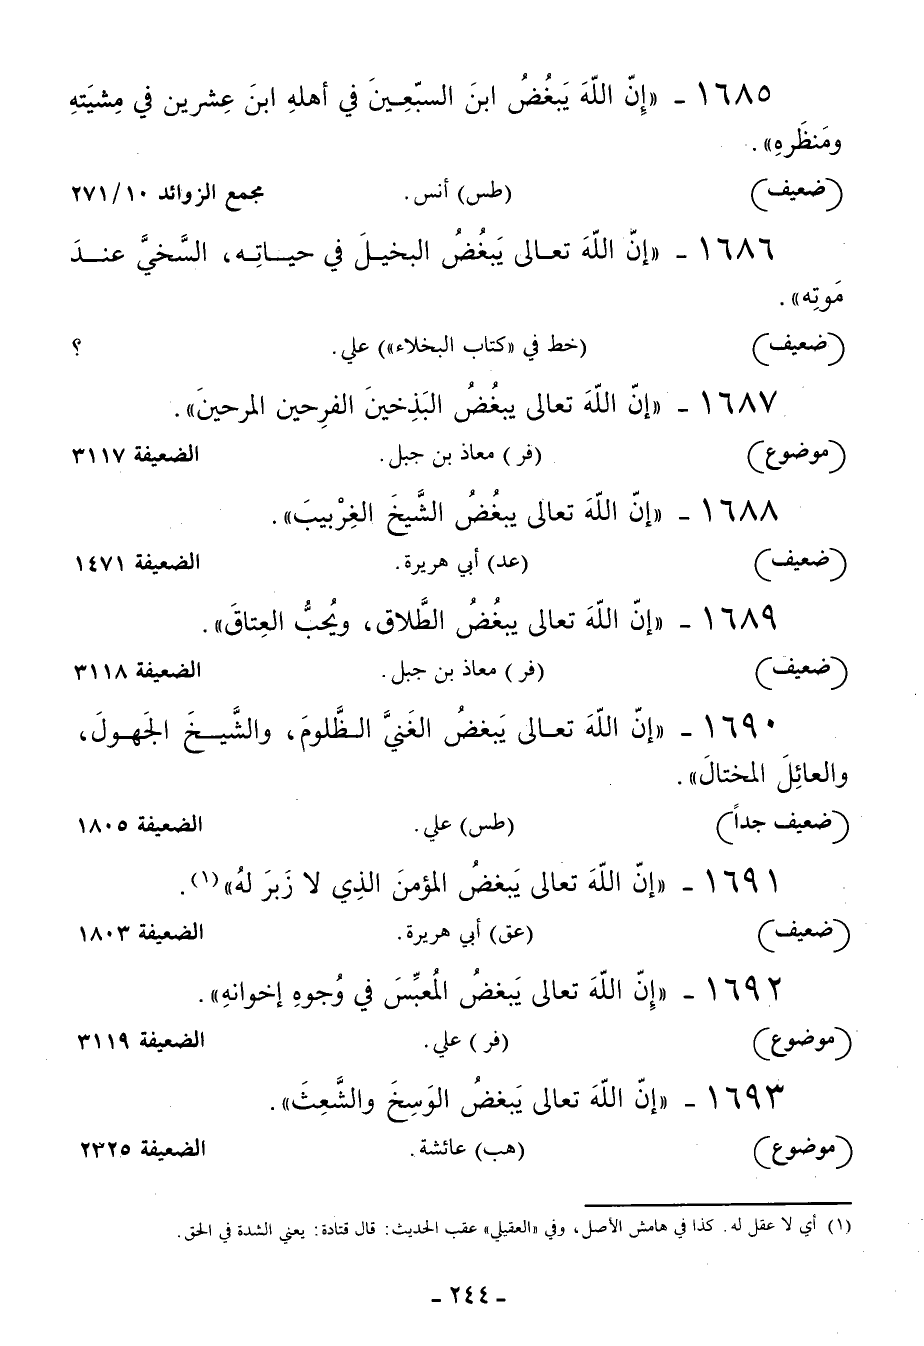 ١٦٨٥ - «إِنّ اللّهَ يَبغُضُ ابنَ السبّعِينَ في أهلهِ ابنَ عِشرين في مِشيَتهِ
ومَنظَرهِ».
(ضعيف) (طس) أنس. مجمع الزوائد ٢٧١/١٠
١٦٨٦ - «إنّ اللّهَ تعالى يَبغُضُ البخيلَ في حياتِه، السَّخيَّ عندَ
مَوتِه».
(ضعيف) (خط في «كتاب البخلاء») علي. ؟
١٦٨٧ - «إنّ اللّهَ تعالى يبغُضُ البَذِخينَ الفرِحين المرحينَ».
(موضوع) (فر) معاذ بن جبل. الضعيفة ٣١١٧
١٦٨٨ - «إنّ اللّهَ تعالى يبغُضُ الشَّيخَ الغِرْبيبَ».
(ضعيف) (عد) أبي هريرة. الضعيفة ١٤٧١
١٦٨٩ - «إنّ اللّهَ تعالى يبغُضُ الطَّلاق، ويُحبُّ العِتاقَ».
(ضعيف) (فر) معاذ بن جبل. الضعيفة ٣١١٨
١٦٩٠ - «إنّ اللّهَ تعالى يَبغضُ الغَنيَّ الظَّلومَ، والشَّيخَ الجَهولَ،
والعائِلَ المختالَ».
(ضعيف جداً) (طس) علي. الضعيفة ١٨٠٥
١٦٩١ - «إنّ اللّهَ تعالى يَبغضُ المؤمنَ الذِي لا زَبرَ لهُ»(١).
(ضعيف) (عق) أبي هريرة. الضعيفة ١٨٠٣
١٦٩٢ - «إِنّ اللّهَ تعالى يَبغضُ المُعبِّسَ في وُجوهِ إخوانهِ».
(موضوع) (فر) علي. الضعيفة ٣١١٩
١٦٩٣ - «إنّ اللّهَ تعالى يَبغضُ الوَسِخَ والشَّعِثَ».
(موضوع) (هب) عائشة. الضعيفة ٢٣٢٥
(١) أي لا عقل له. كذا في هامش الأصل، وفي «العقيلي» عقب الحديث: قال قتادة: يعني الشدة في الحق.
- ٢٤٤ -